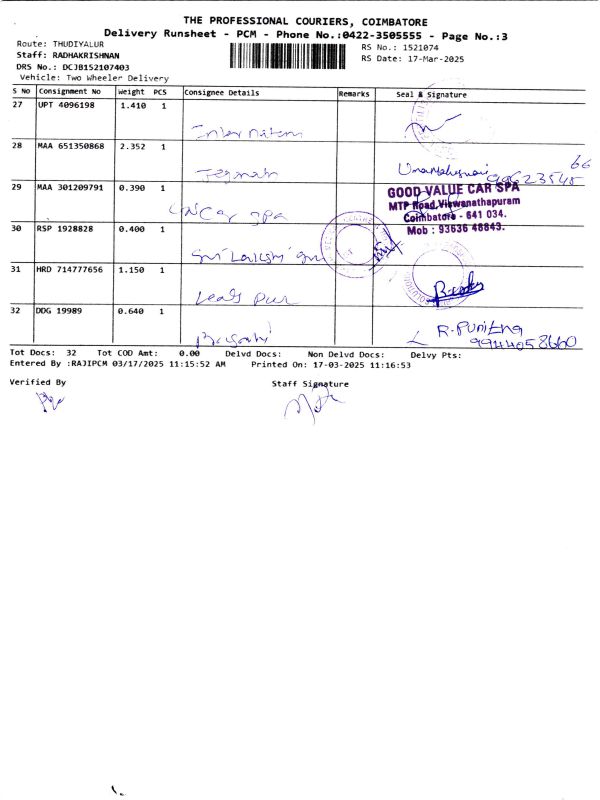 THE PROFESSIONAL COURIERS, COIMBATORE
Delivery Runsheet - PCM - Phone No.:0422-3505555 - Page No.:3
Route: THUDIYALUR
Staff: RADHAKRISHNAN
DRS No.: DCJB152107403
Vehicle: Two Wheeler Delivery
RS No.: 1521074
RS Date: 17-Mar-2025
S No Consignment No Weight PCS Consignee Details Remarks Seal & Signature
27 UPT 4096198 1.410 1
28 MAA 651350868 2.352 1
29 MAA 301209791 0.390 1 Car Spa
GOOD VALUE CAR SPA
MTP Road, Viswanathapuram
Coimbatore - 641 034.
Mob : 93636 48843.
30 RSP 1928828 0.400 1 Sri Lakshi
31 HRD 714777656 1.150 1
32 DDG 19989 0.640 1
R. Punitha
9944058660
Tot Docs: 32 Tot COD Amt: 0.00 Delvd Docs: Non Delvd Docs: Delvy Pts:
Entered By :RAJIPCM 03/17/2025 11:15:52 AM Printed On: 17-03-2025 11:16:53
Verified By Staff Signature